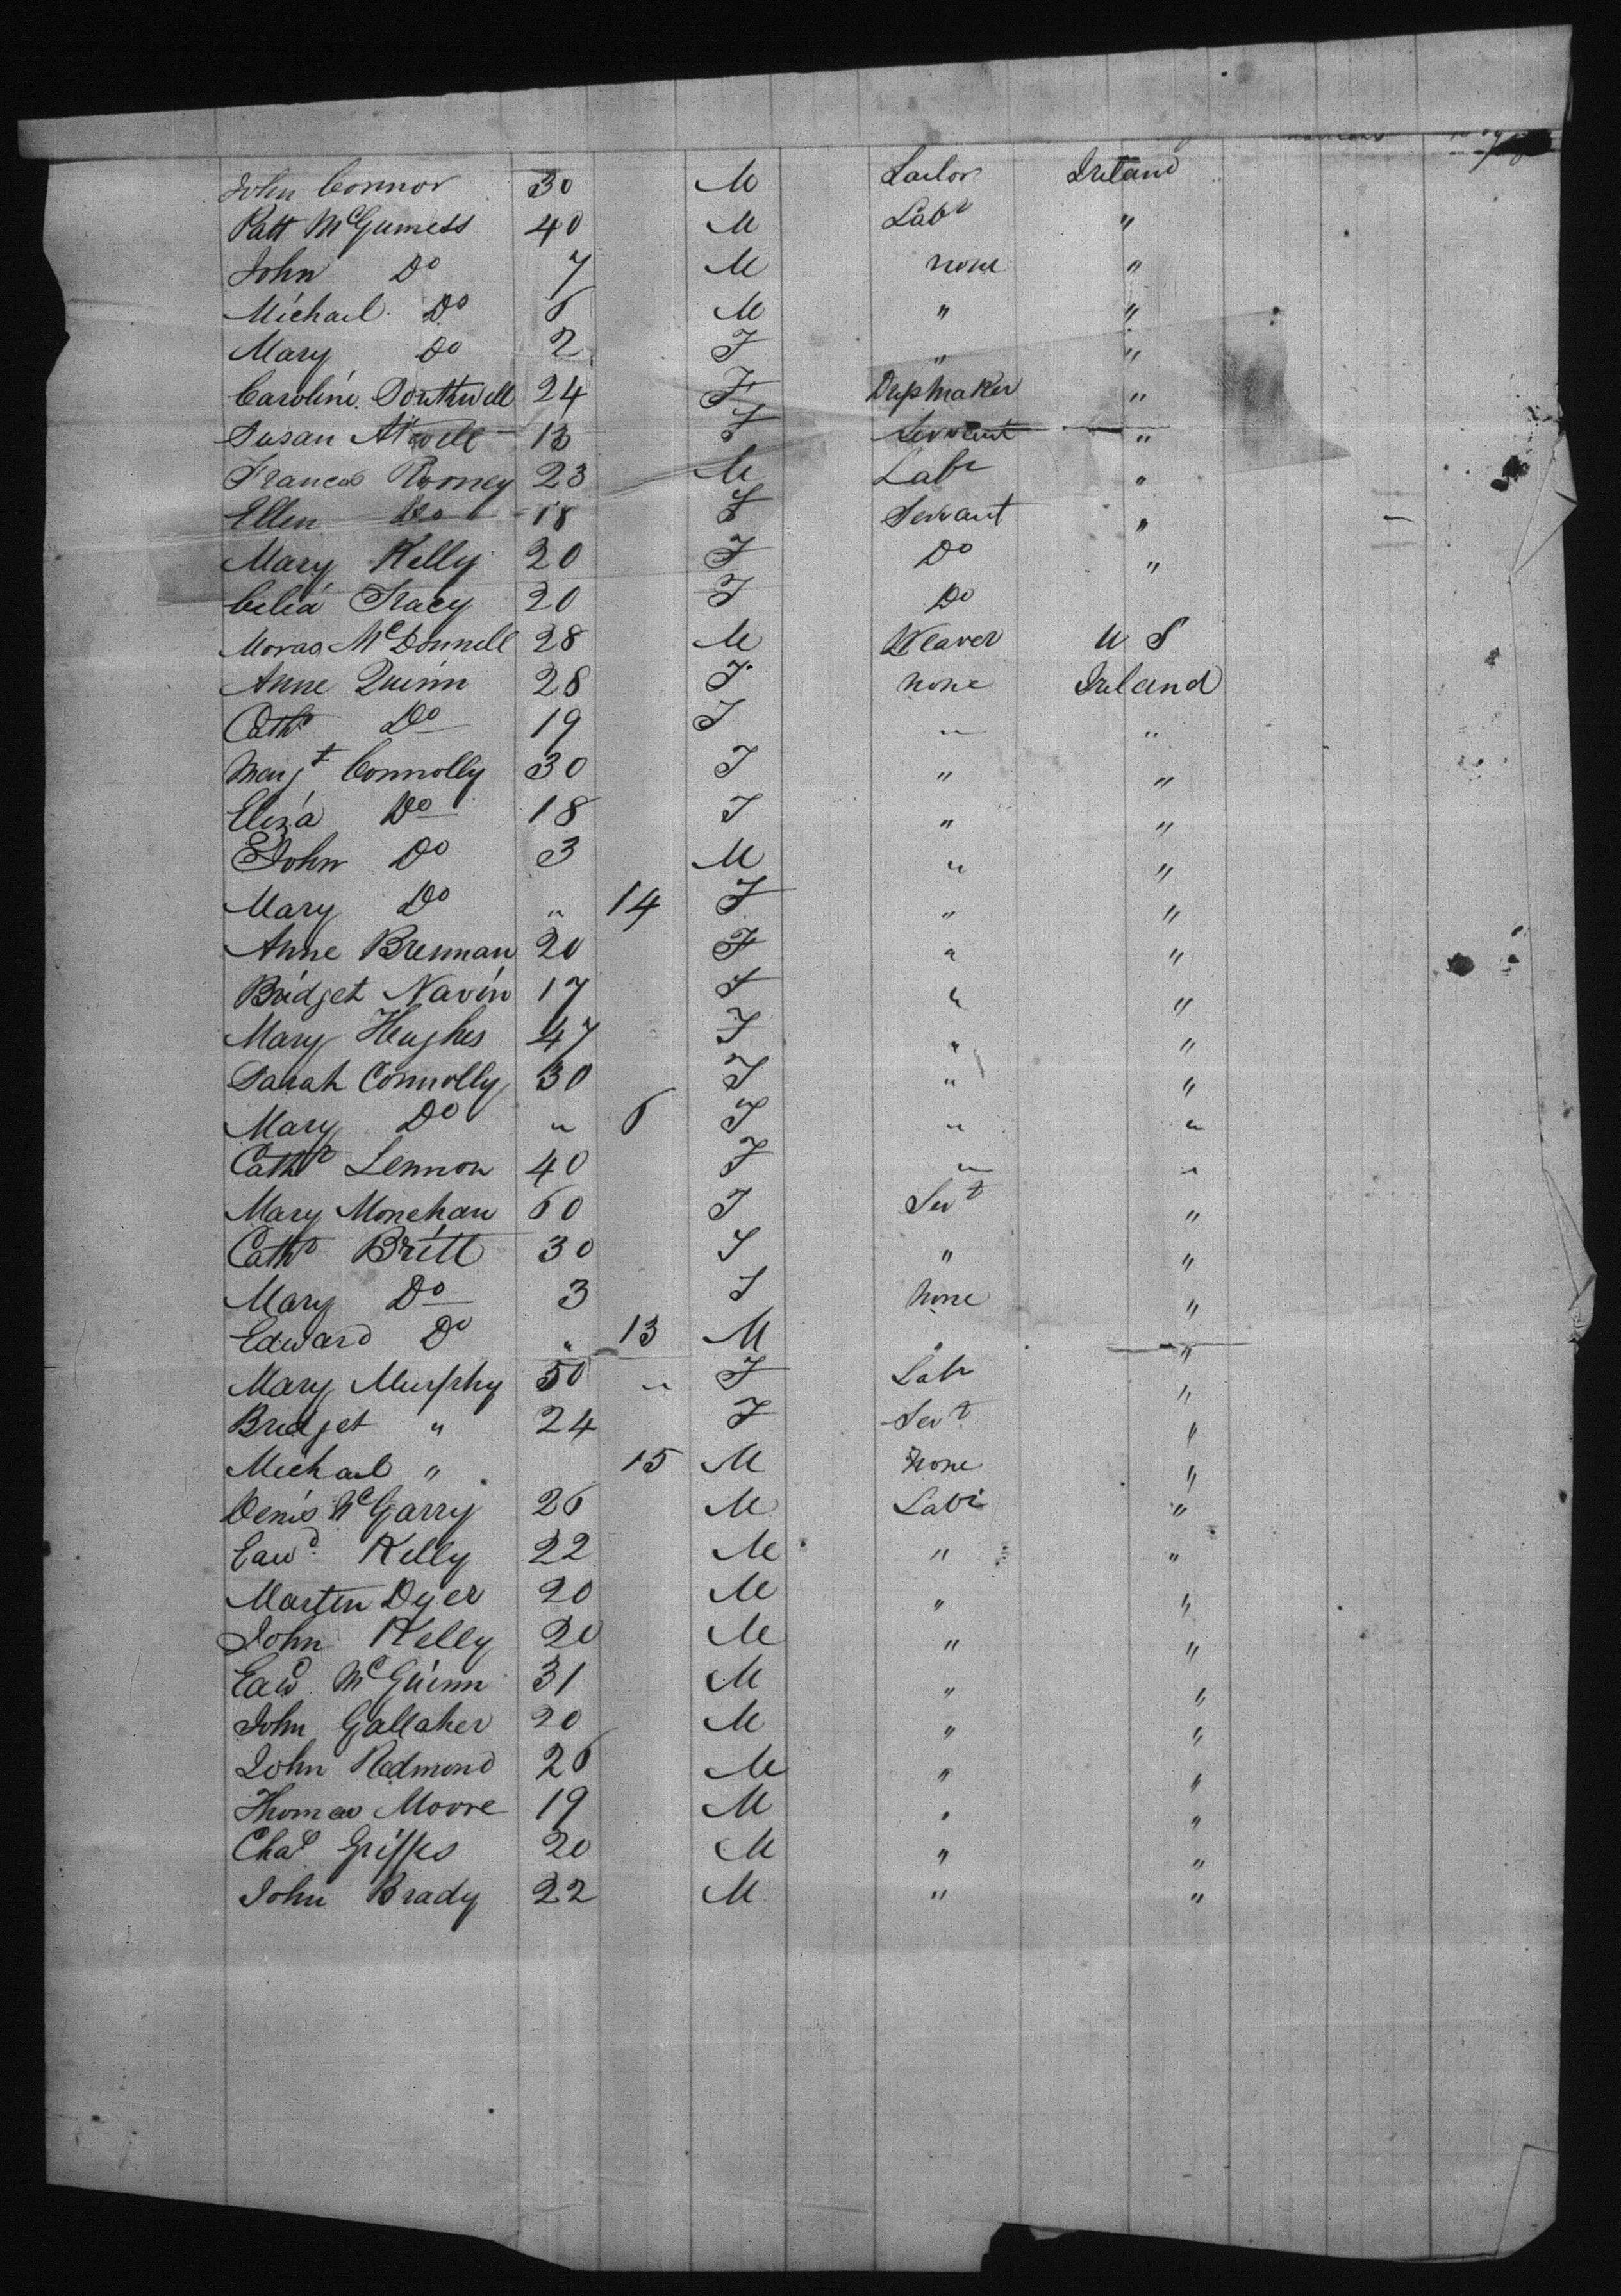 John Connor 30 M Tailor Ireland
Patt McGuiness 40 M Labr "
John Do 7 M none "
Michael Do 6 M " "
Mary Do 2 F " "
Caroline Southwell 24 F Dressmaker "
Susan Atwell 13 F Servant "
Frances Rooney 23 M Labr "
Ellen Do 18 F Servant "
Mary Kelly 20 F Do "
Celia Tracy 20 F Do
McDonnell 28 M Weaver U S
Anne Quinn 28 F none Ireland
Cathe Do 19 F " "
Margt Connolly 30 F " "
Eliza Do 18 F " "
John Do 3 M " "
Mary Do " 14 F " "
Anne Brennan 20 F " "
Bridget Navin 17 F " "
Mary Hughes 47 F " "
Sarah Connolly 30 F " "
Mary Do " 6 F " "
Cathe Lennon 40 F " "
Mary Monehan 60 F Servt "
Cathe Britt 30 F " "
Mary Do 3 F none "
Edward Do " 13 M " "
Mary Murphy 50 " F Labr "
Bridget " 24 F Servt "
Michael " 15 M none "
Denis McGarry 26 M Labr "
Edwd Kelly 22 M " "
Martin Dyer 20 M " "
John Kelly 20 M " "
Edwd McGuinn 31 M " "
John Gallaher 20 M " "
John Redmond 26 M " "
Thomas Moore 19 M " "
Chas 20 M " "
John Brady 22 M " "